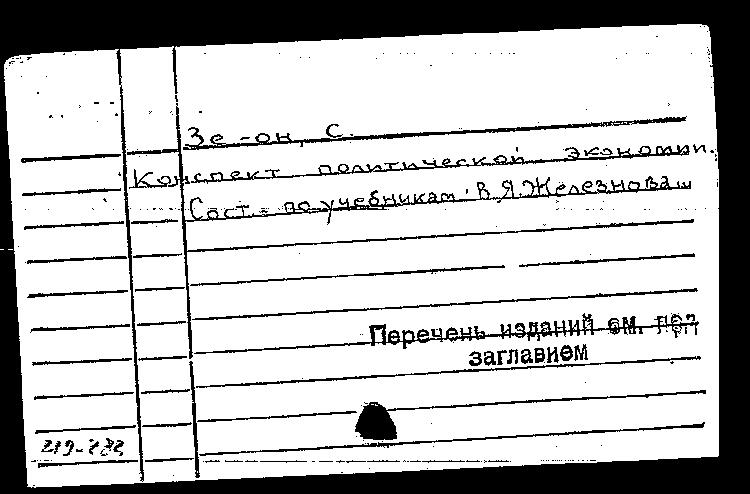 Зе-он, С.
Конспект политической экономии.
Сост. по учебникам: В.Я. Железнова...
Перечень изданий см. под
заглавием